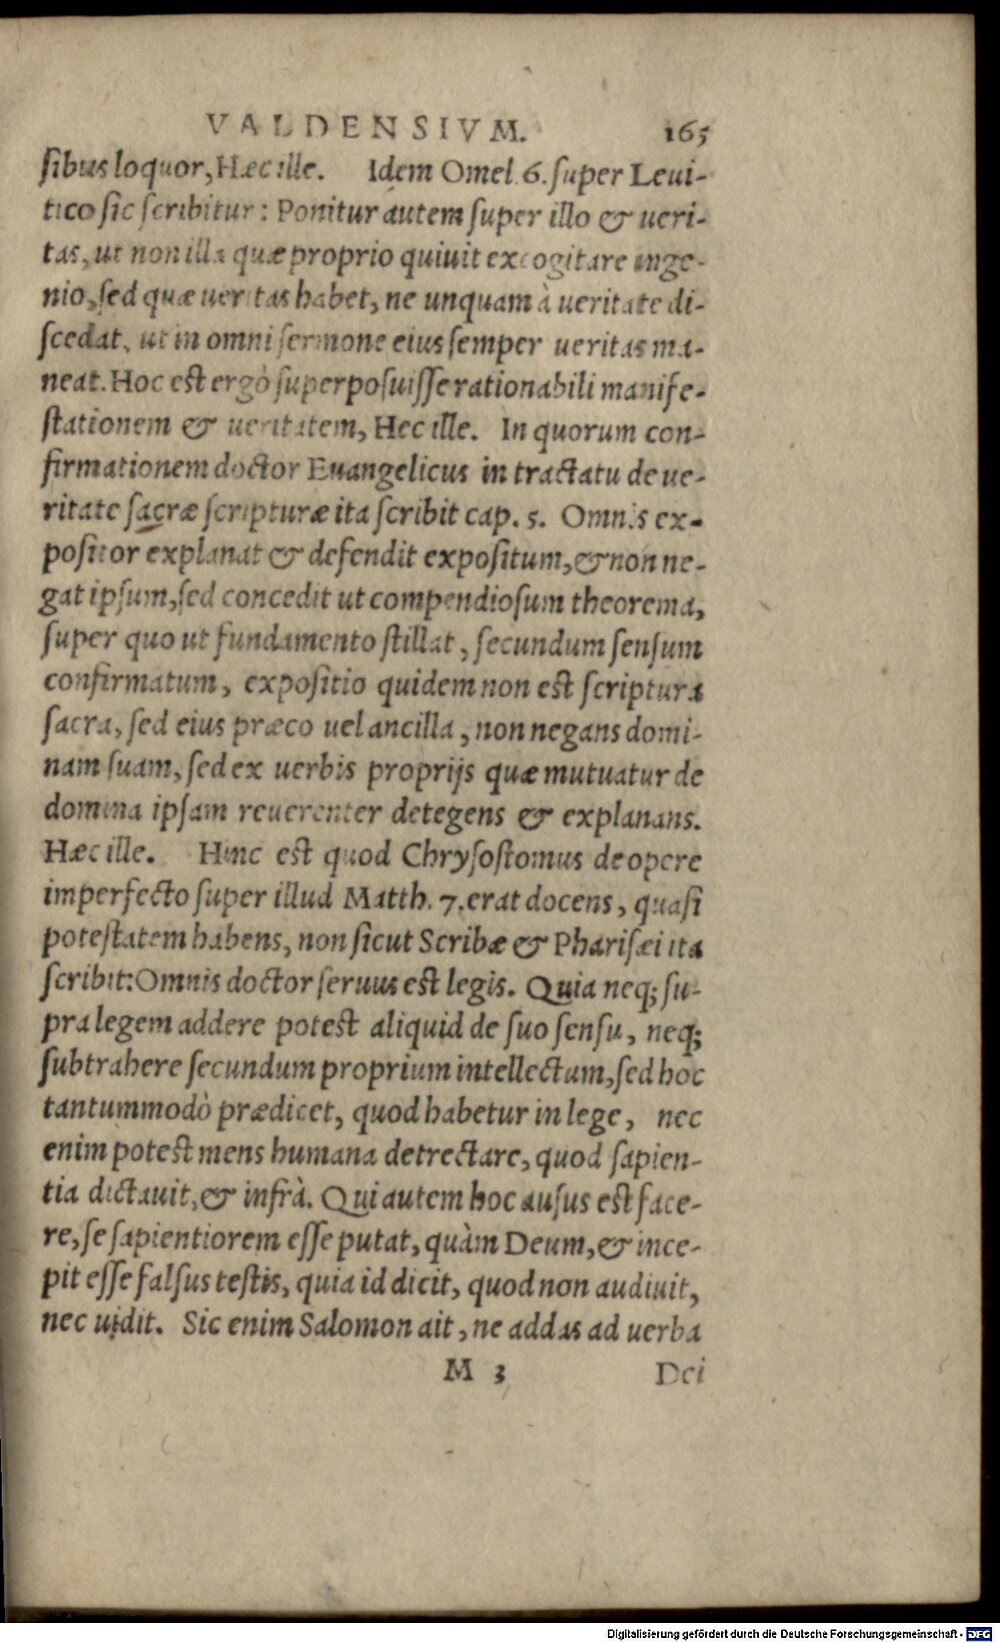 VALDENSIVM. 165
ſibus loquor, Hæc ille. Idem Omel. 6. ſuper Leui-
tico ſic ſcribitur: Ponitur autem ſuper illo & ueri-
tas, ut non illa quæ proprio quiuit excogitare inge-
nio, ſed quæ ueritas habet, ne unquam à ueritate di-
ſcedat, ut in omni ſermone eius ſemper ueritas ma-
neat. Hoc est ergò ſuperpoſuiſſe rationabili manife-
ſtationem & ueritatem, Hec ille. In quorum con-
firmationem doctor Euangelicus in tractatu de ue-
ritate ſacræ ſcripturæ ita ſcribit cap. 5. Omnis ex-
poſitor explanat & defendit expoſitum, & non ne-
gat ipſum, ſed concedit ut compendioſum theorema,
ſuper quo ut fundamento ſtillat, ſecundum ſenſum
confirmatum, expoſitio quidem non est ſcriptura
ſacra, ſed eius præco uel ancilla, non negans domi-
nam ſuam, ſed ex uerbis proprijs quæ mutuatur de
domina ipſam reuerenter detegens & explanans.
Hæc ille. Hinc est quod Chryſoſtomus de opere
imperfecto ſuper illud Matth. 7. erat docens, quaſi
poteſtatem habens, non ſicut Scribæ & Phariſæi ita
ſcribit: Omnis doctor ſeruus est legis. Quia neq; ſu-
pra legem addere potest aliquid de ſuo ſenſu, neq;
ſubtrahere ſecundum proprium intellectum, ſed hoc
tantummodò prædicet, quod habetur in lege, nec
enim potest mens humana detrectare, quod ſapien-
tia dictauit, & infrà. Qui autem hoc auſus est face-
re, ſe ſapientiorem eſſe putat, quàm Deum, & ince-
pit eſſe falſus teſtis, quia id dicit, quod non audiuit,
nec uidit. Sic enim Salomon ait, ne addas ad uerba
M 3 Dei
Digitalisierung gefördert durch die Deutsche Forschungsgemeinschaft - DFG